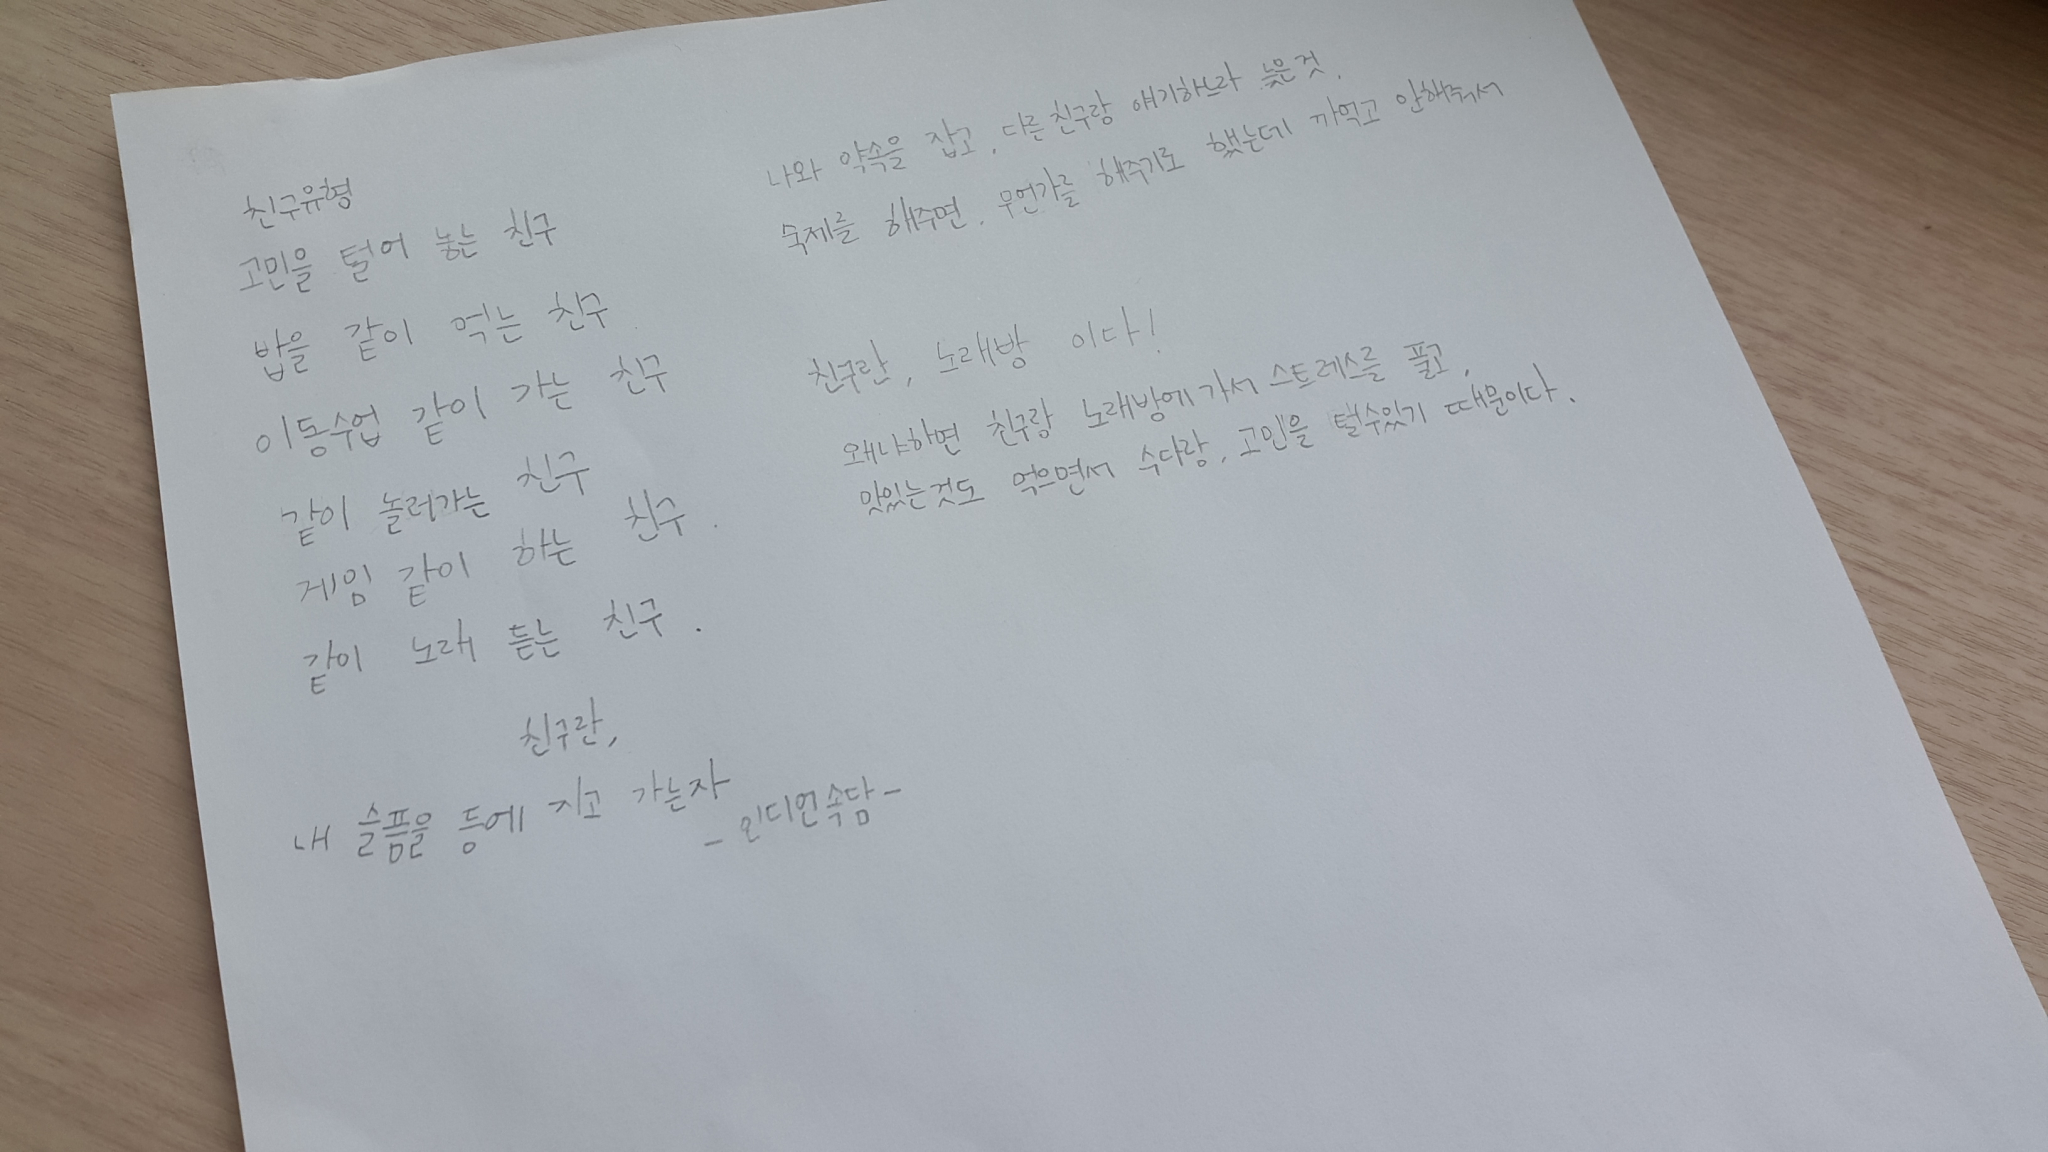 친구유형
고민을 털어 놓는 친구
밥을 같이 먹는 친구
이동수업 같이 가는 친구
같이 놀러가는 친구
게임 같이 하는 친구.
같이 노래 듣는 친구.
친구란,
내 슬픔을 등에 지고 가는자
- 인디언속담 -
나와 약속을 잡고, 다른친구랑 얘기하느라 늦은것.
숙제를 해주면, 무언가를 해주기로 했는데 까먹고 안해줘서
친구란, 노래방 이다!
왜냐하면 친구랑 노래방에가서 스트레스를 풀고,
맛있는것도 먹으면서 수다랑, 고민을 털수있기 때문이다.